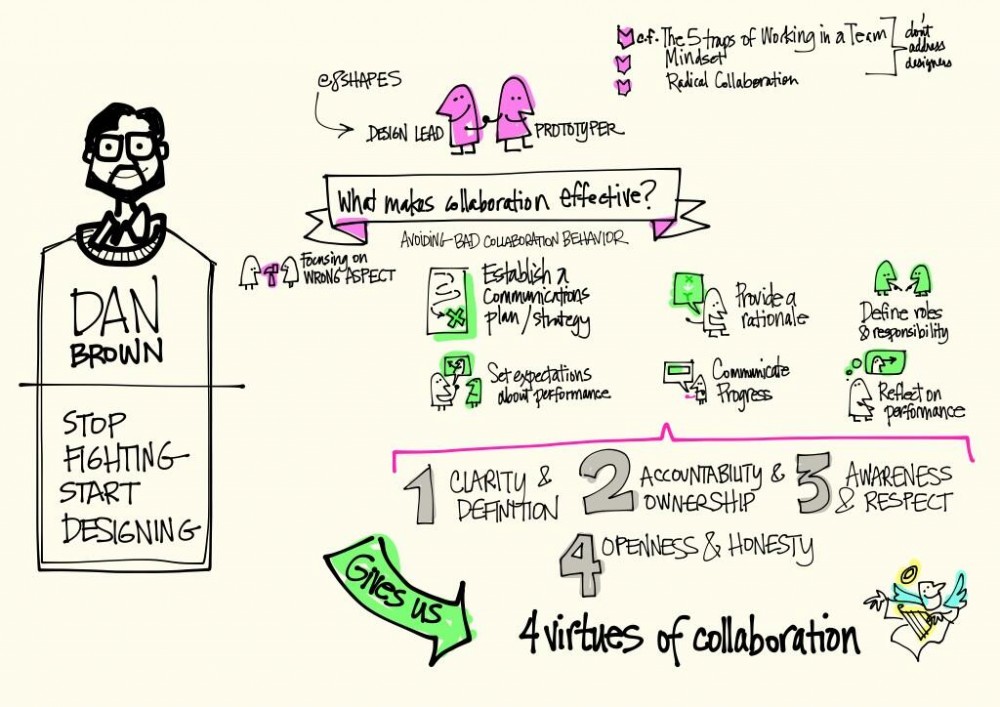 DAN
BROWN
STOP
FIGHTING
START
DESIGNING
c.f. The 5 traps of Working in a Team
Mindset
Radical Collaboration
don't
address
designers
eg SHAPES
DESIGN LEAD
PROTOTYPER
What makes collaboration effective?
AVOIDING BAD COLLABORATION BEHAVIOR
Focusing on
WRONG ASPECT
Establish a
Communications
plan/strategy
Provide a
rationale
Define roles
& responsibility
Set expectations
about performance
Communicate
Progress
Reflect on
performance
1 CLARITY &
DEFINITION
2 ACCOUNTABILITY &
OWNERSHIP
3 AWARENESS
& RESPECT
4 OPENNESS & HONESTY
Gives us
4 virtues of collaboration